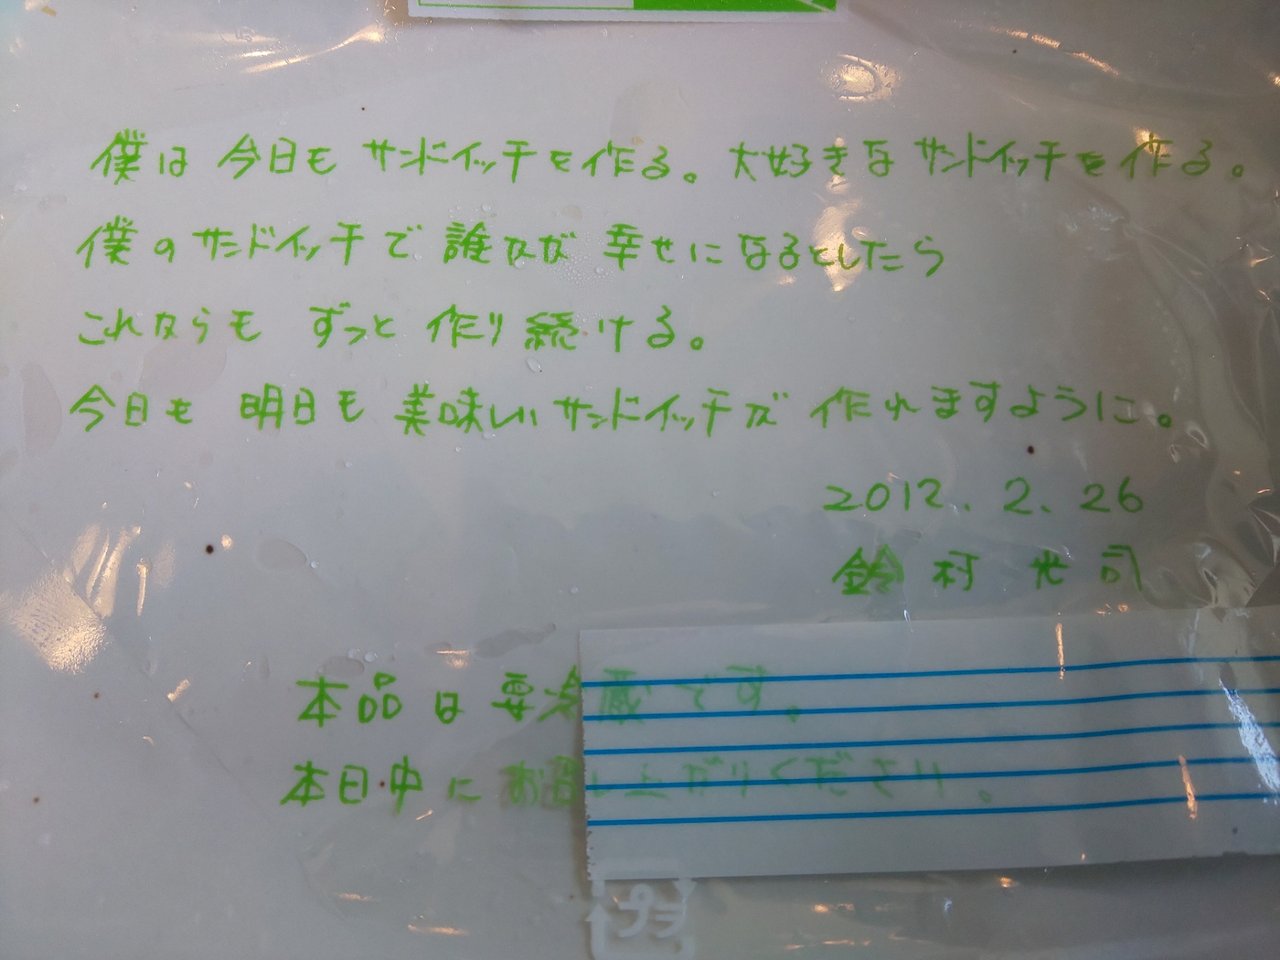 僕は今日もサンドイッチを作る。大好きなサンドイッチを作る。
僕のサンドイッチで誰かが幸せになるとしたら
これからもずっと作り続ける。
今日も明日も美味しいサンドイッチが作れますように。
2012.2.26
鈴村光司
本品は要冷蔵です。
本日中にお召し上がりください。
プラ